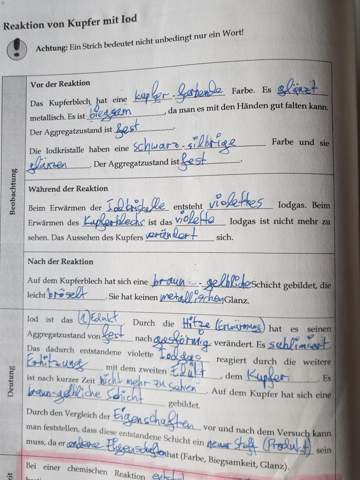 Reaktion von Kupfer mit Iod
Achtung: Ein Strich bedeutet nicht unbedingt nur ein Wort!
Beobachtung
Vor der Reaktion
Das Kupferblech hat eine kupfer-farbende Farbe. Es glänzt
metallisch. Es ist biegsam, da man es mit den Händen gut falten kann.
Der Aggregatzustand ist fest.
Die Iodkristalle haben eine schwarz-silbrige Farbe und sie
glänzen. Der Aggregatzustand ist fest.
Während der Reaktion
Beim Erwärmen der Iodkristalle entsteht violettes Iodgas. Beim
Erwärmen des Kupferblechs ist das violette Iodgas ist nicht mehr zu
sehen. Das Aussehen des Kupfers verändert sich.
Nach der Reaktion
Auf dem Kupferblech hat sich eine braun-gelbliche Schicht gebildet, die
leicht bröselt. Sie hat keinen metallischen Glanz.
Deutung
Iod ist das Edukt. Durch die Hitze (Erwärmung) hat es seinen
Aggregatzustand von fest nach gasförmig verändert. Es sublimiert
Das dadurch entstandene violette Iodgas reagiert durch die weitere
Erhitzung mit dem zweiten Edukt, dem Kupfer. Es
ist nach kurzer Zeit nicht mehr zu sehen. Auf dem Kupfer hat sich eine
braun-gelbliche Schicht gebildet.
Durch den Vergleich der Eigenschaften vor und nach dem Versuch kann
man feststellen, dass diese entstandene Schicht ein neuer Stoff (Produkt) sein
muss, da er andere Eigenschaften hat (Farbe, Biegsamkeit, Glanz).
Bei einer chemischen Reaktion